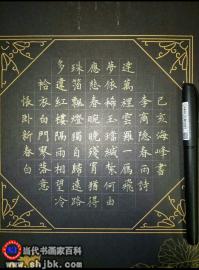 悵臥新春白
袷衣白門寥落意
多違紅樓隔雨相望冷
珠箔飄燈獨自歸遠路
應悲春晼晚殘宵猶得
夢依稀玉璫緘札何由
達萬裡雲羅一雁飛
李商隱春雨詩
己亥海峰書
当代书画家百科
www.shjbk.com